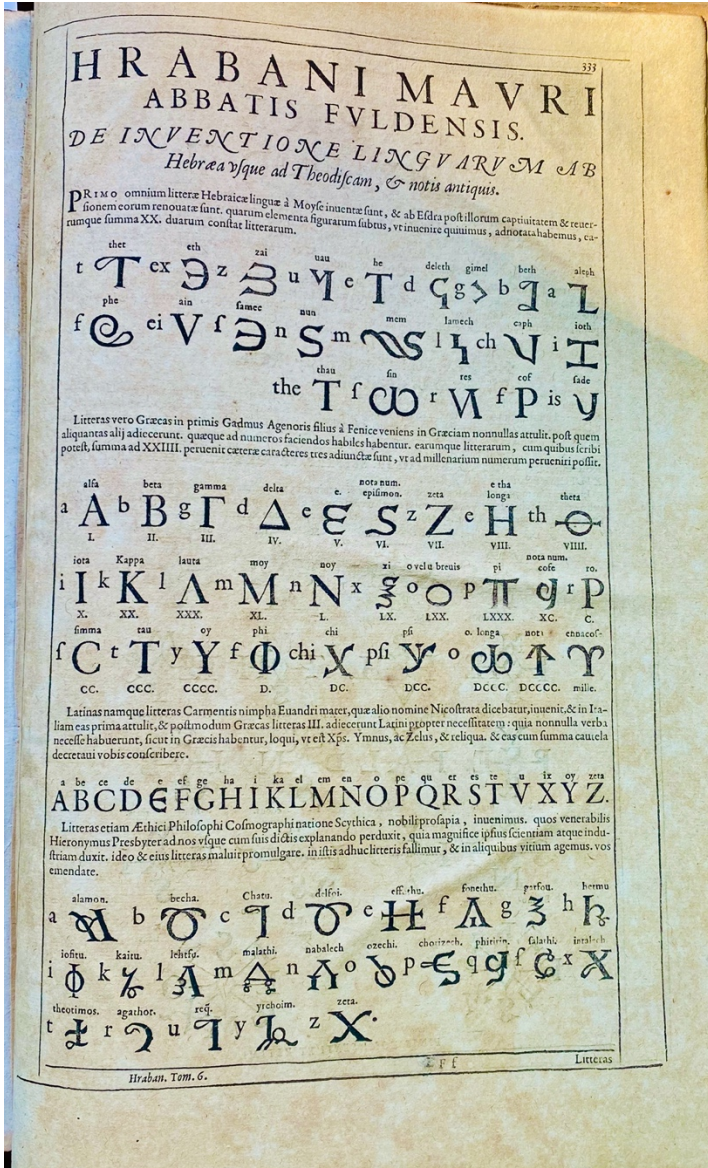 333
HRABANI MAVRI
ABBATIS FVLDENSIS.
DE INVENTIONE LINGVARVM AB
Hebræa vſque ad Theodiſcam, & notis antiquis.
PRIMO omnium litteræ Hebraicæ linguæ à Moyſe inuentæ ſunt, & ab Eſdra poſt illorum captiuitatem & reuer-
ſionem eorum renouatæ ſunt. quarum elementa figurarum ſubtus, vt inuenire quiuimus, adnotata habemus, ea-
rumque ſumma XX. duarum conſtat litterarum.
thet eth zai uau he deleth gimel beth aleph
t ex z u e d g b a
phe ain ſamec nun mem lamech caph ioth
f ei ſ n m l ch i
thau ſin res cof ſade
the ſ r f is
Litteras vero Græcas in primis Gadmus Agenoris filius à Fenice veniens in Græciam nonnullas attulit. poſt quem
aliquantas alij adiecerunt. quæque ad numeros faciendos habiles habentur. earumque litterarum, cum quibus ſcribi
poteſt, ſumma ad XXIIII. peruenit cæteræ caracteres tres adiunctæ ſunt, vt ad millenarium numerum perueniri poſſit.
alfa beta gamma delta e. nota num. epiſimon. zeta e tha longa theta
a Α b Β g Γ d Δ e Ε S z Ζ e Η th Θ
I. II. III. IV. V. VI. VII. VIII. VIIII.
iota Kappa lauta moy noy xi o vel u breuis pi nota num. cofe ro.
i Ι k Κ l Λ m Μ n Ν x ξ o Ο p π r Ρ
X. XX. XXX. XL. L. LX. LXX. LXXX. XC. C.
ſimma tau oy phi chi pſi o. longa ennacoſ-
ſ C t Τ y Υ f Φ chi Χ pſi o
CC. CCC. CCCC. D. DC. DCC. DCCC. DCCCC. mille.
Latinas namque litteras Carmentis nimpha Euandri mater, quæ alio nomine Nicoſtrata dicebatur, inuenit, & in Ita-
liam eas prima attulit, & poſtmodum Græcas litteras III. adiecerunt Latini propter neceſſitatem: quia nonnulla verba
neceſſe habuerunt, ſicut in Græcis habentur, loqui, vt eſt Xp̄s. Ymnus, ac Zelus, & reliqua. & eas cum ſumma cautela
decretaui vobis conſcribere.
a be ce de e ef ge ha i ka el em en o pe qu er es te u ix oy zeta
ABCDEFGHIKLMNOPQRSTVXYZ.
Litteras etiam Æthici Philoſophi Coſmographi natione Scythica, nobili proſapia, inuenimus. quos venerabilis
Hieronymus Presbyter ad nos vſque cum ſuis dictis explanando perduxit, quia magnifice ipſius ſcientiam atque indu-
ſtriam duxit. ideo & eius litteras maluit promulgare. in iſtis adhuc litteris fallimur, & in aliquibus vitium agemus. vos
emendate.
alamon. becha. Chatu. delfoi. effothu. fonethu. garfou. hetmu
a b c d e f g h
ioſitu. kaitu. lehtfu. malathi. nabalech ozechi. chorizech. phitirin. ſalathi. intalech
i k l m n o p q ſ x
theotimos. agathot. req̃. yrchoim. zeta.
t r u y z
Litteras
Hraban. Tom. 6.